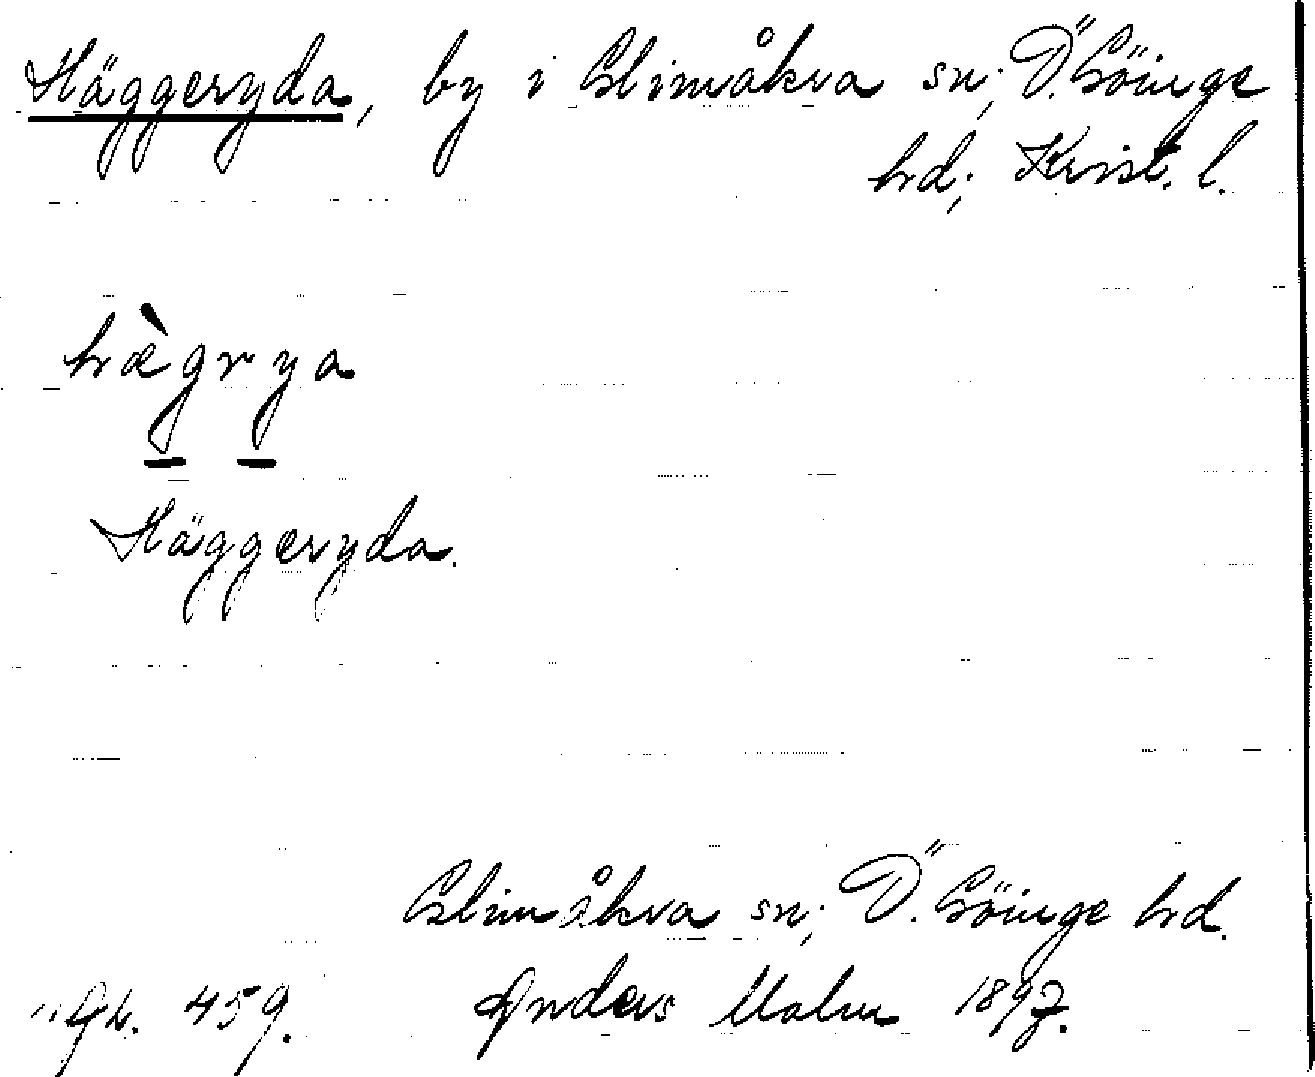 Häggeryda, by i Glimåkra sn; Ö. Göinge
hd; Krist. l.
hæ̀grya
Häggeryda.
Glimåkra sn; Ö. Göinge hd.
459. Anders Malm 1897.